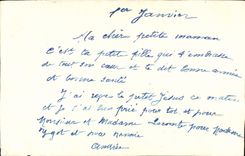 1er Janvier
Ma chère petite maman
C'est ta petite fille qui t'embrasse
de tout son cœur et te dit bonne année
et bonne santé
J'ai reçu le petit Jésus ce matin
et je l'ai bien prié pour toi et pour
Monsieur et Madame pour Madame
et ma
Andrée